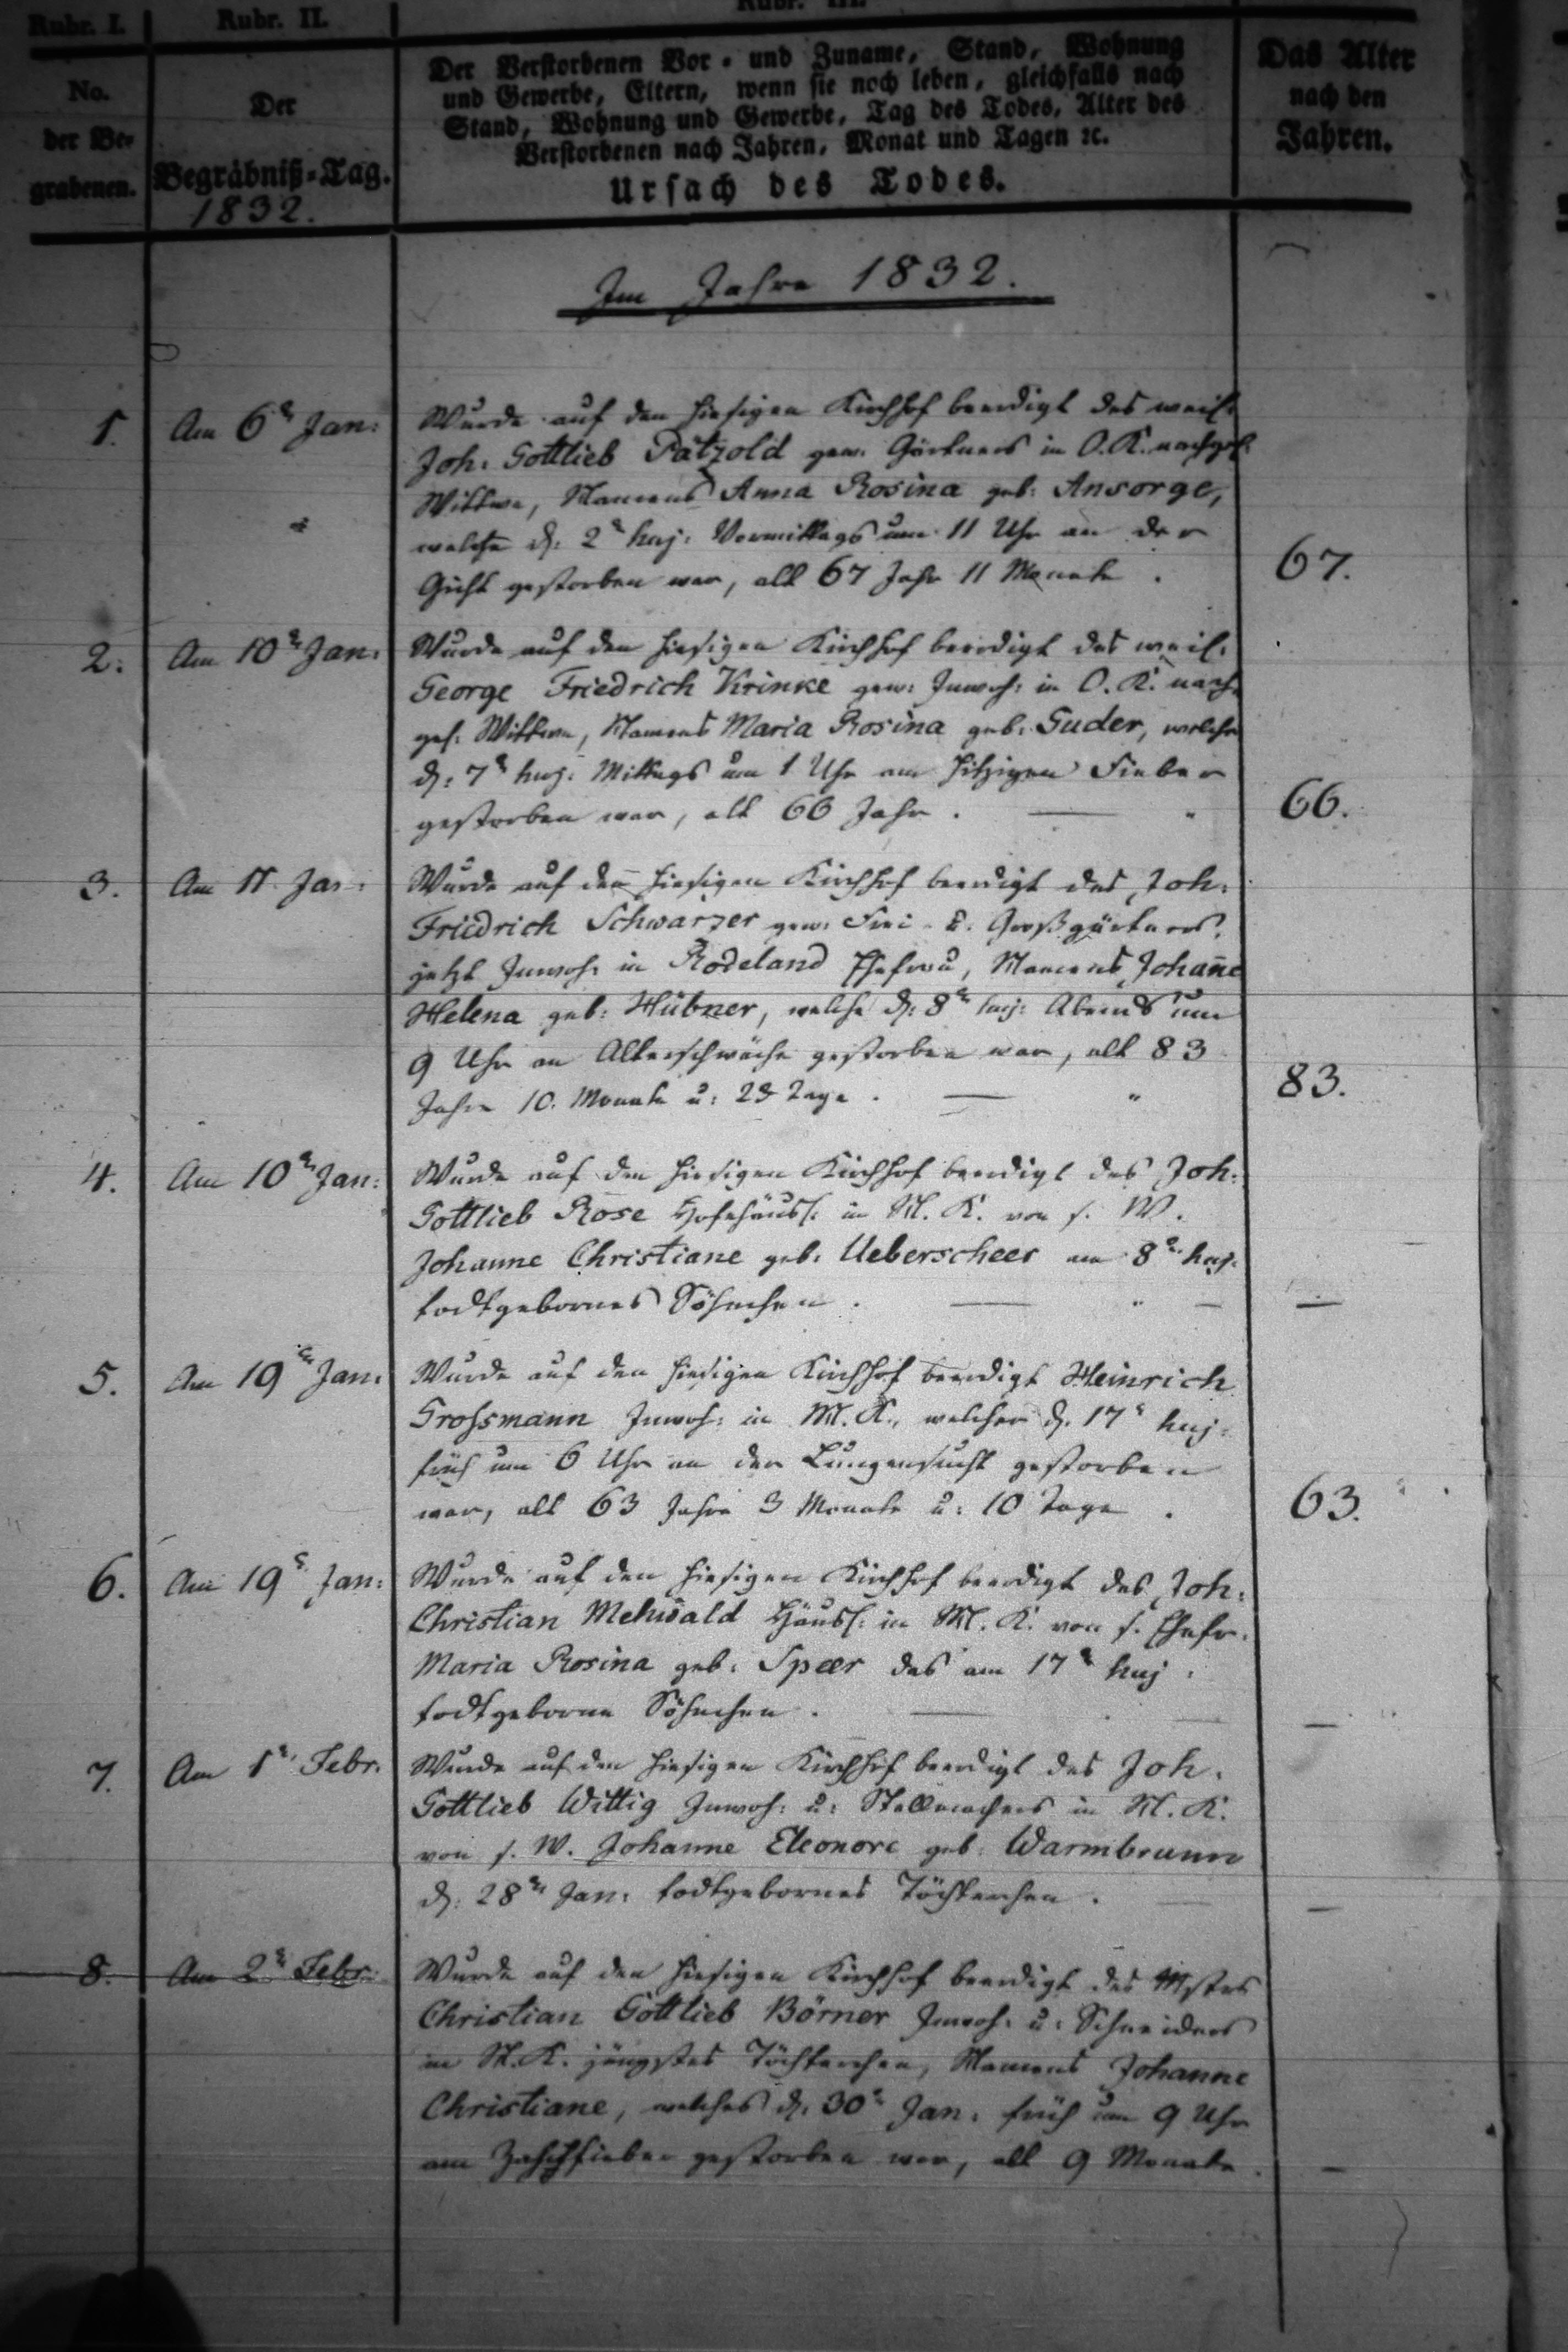 Rubr. I.
Rubr. II.
Rubr. III.
No.
der Be-
grabenen.
Der
Begräbniß-Tag.
1832.
Der Verstorbenen Vor- und Zuname, Stand, Wohnung
und Gewerbe, Eltern, wenn sie noch leben, gleichfalls nach
Stand, Wohnung und Gewerbe, Tag des Todes, Alter des
Verstorbenen nach Jahren, Monat und Tagen ꝛc.
Ursach des Todes.
Das Alter
nach den
Jahren.
Im Jahre 1832.
1. Am 6t Jan:
Wurde auf den hiesigen Kirchhof beerdigt des weil:
Joh: Gottlieb Pätzold gew: Gärtners in O. K. nachgel:
Wittwe, Namens Anna Rosina geb: Ansorge,
welche d: 2t huj: Vormittags um 11 Uhr an der
Gicht gestorben war, alt 67 Jahr 11 Monate.
67.
2. Am 10t Jan:
Wurde auf den hiesigen Kirchhof beerdigt des weil:
George Friedrich Krinke gew: Inwoh: in O. K. nach-
gel: Wittwe, Namens Maria Rosina geb: Guder, welche
d: 7t huj: Mittags um 1 Uhr am hitzigen Fieber
gestorben war, alt 66 Jahr.
66.
3. Am 11 Jan:
Wurde auf den hiesigen Kirchhof beerdigt des Joh:
Friedrich Schwarzer gew: Frei- u: Großgärtners,
jetzt Inwoh: in Rodeland Ehefrau, Namens Johañe
Helena geb: Hübner, welche d: 8t huj: Abends um
9 Uhr an Altersschwäche gestorben war, alt 83
Jahre 10. Monate u: 23 Tage.
83.
4. Am 10t Jan:
Wurde auf den hiesigen Kirchhof beerdigt des Joh:
Gottlieb Rose Hofehäusl: in M. K. von s. W.
Johanne Christiane geb: Ueberscheer am 8t huj:
todtgebornes Söhnchen.
5. Am 19ten Jan:
Wurde auf den hiesigen Kirchhof beerdigt Heinrich
Grossmann Inwoh: in M. K., welcher d. 17t huj:
früh um 6 Uhr an der Lungensucht gestorben
war, alt 63 Jahre 3 Monate u: 10 Tage.
63.
6. Am 19t Jan:
Wurde auf den hiesigen Kirchhof beerdigt des Joh:
Christian Mehwald Häusl: in M. K. von s. Ehefr:
Maria Rosina geb: Speer das am 17t huj:
todtgeborne Söhnchen.
7. Am 1t Febr.
Wurde auf den hiesigen Kirchhof beerdigt des Joh:
Gottlieb Wittig Inwoh: u: Stellmachers in M. K.
von s. W. Johanne Eleonore geb: Warmbrunn
d: 28t Jan: todtgebornes Töchterchen.
8. Am 2t Febr:
Wurde auf den hiesigen Kirchhof beerdigt des Mstrs
Christian Gottlieb Börner Inwoh: u: Schneiders
in M. K. jüngstes Töchterchen, Namens Johanne
Christiane, welches d. 30t Jan: früh um 9 Uhr
am gestorben war, alt 9 Monate.